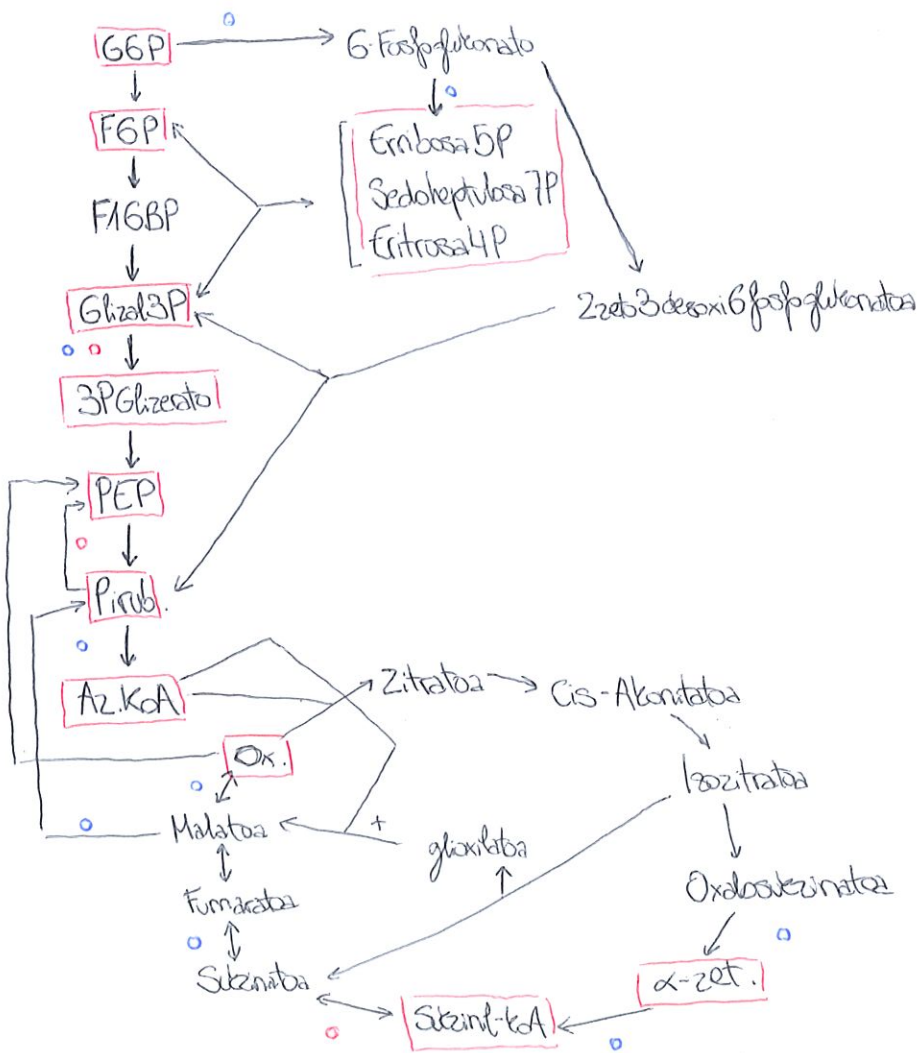 G6P
6-Fosfoglukonato
F6P
Erribosa5P
Sedoheptulosa7P
Eritrosa4P
F16BP
Glizal3P
2zeto3desoxi6fosfoglukonatoa
3PGlizerato
PEP
Pirub.
Az.KoA
Zitratoa
Cis-Akonitatoa
Ox.
Izozitratoa
Malatoa
+
glioxilatoa
Fumaratoa
Oxalosukzinatoa
Sukzinatoa
α-zet.
Sukzinil-KoA